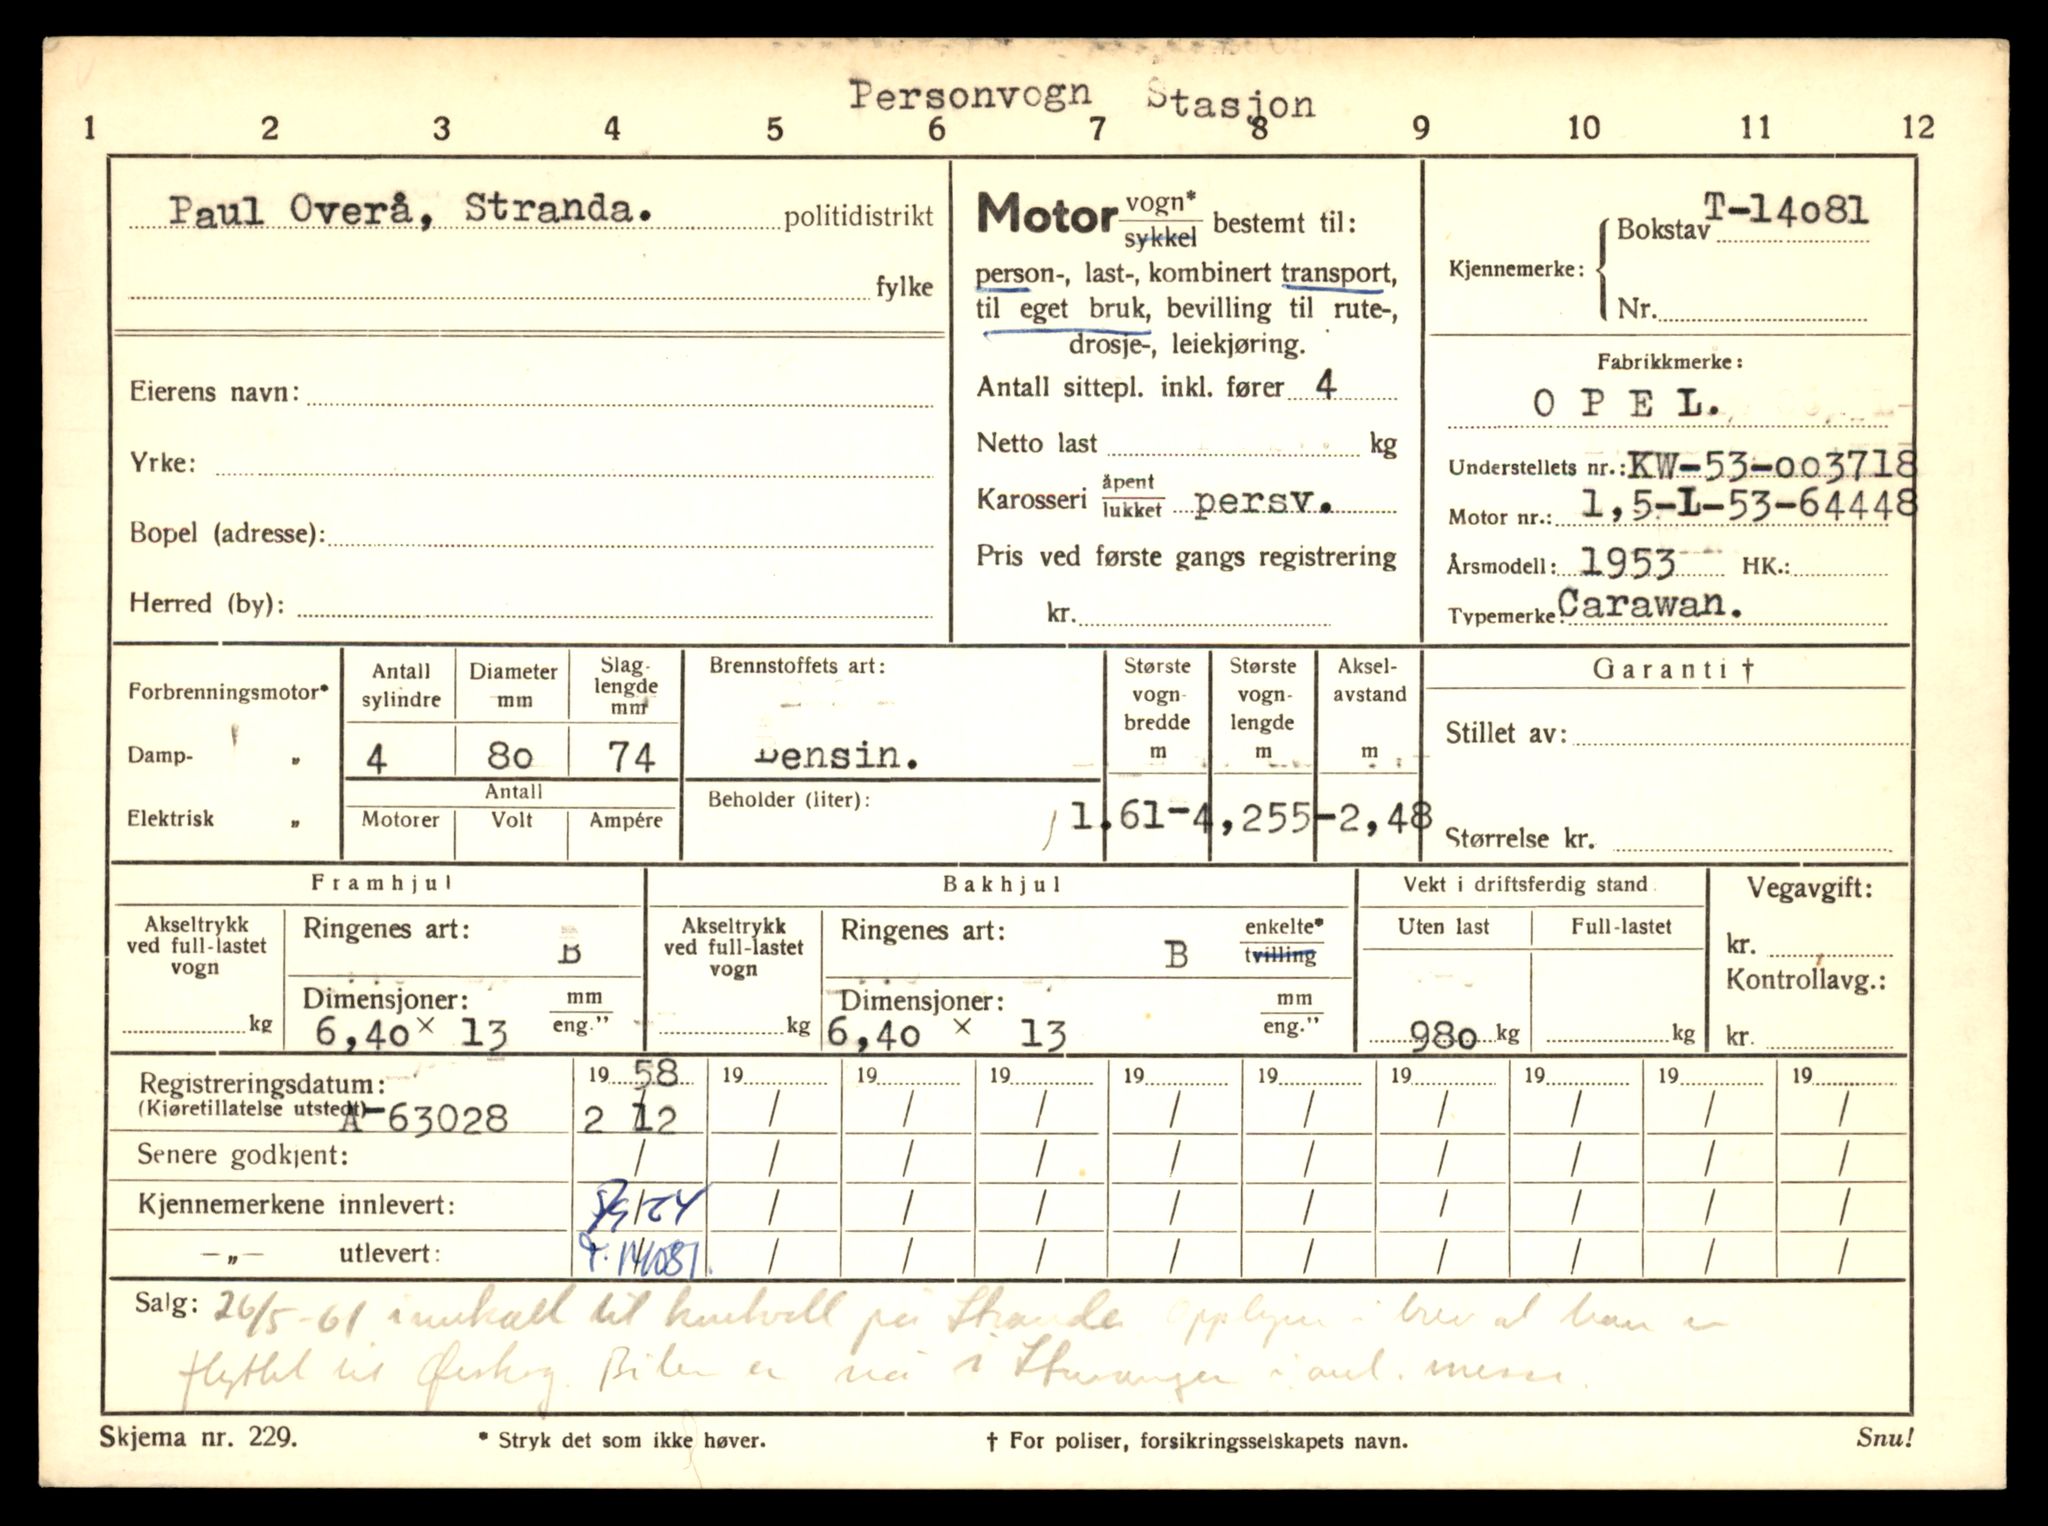 Personvogn Stasjon
1 2 3 4 5 6 7 8 9 10 11 12
Paul Overå, Stranda. politidistrikt
fylke
Eierens navn:
Yrke:
Bopel (adresse):
Herred (by):
Motor vogn* / sykkel bestemt til:
person-, last-, kombinert transport,
til eget bruk, bevilling til rute-,
drosje-, leiekjøring.
Antall sittepl. inkl. fører 4
Netto last kg
Karosseri åpent / lukket persv.
Pris ved første gangs registrering
kr.
Kjennemerke: Bokstav T-14081
Nr.
Fabrikkmerke:
OPEL.
Understellets nr.: KW-53-003718
Motor nr.: 1,5-L-53-64448
Årsmodell: 1953 HK.:
Typemerke: Carawan.
Forbrenningsmotor*
Damp- „
Elektrisk „
Antall sylindre
4
Diameter mm
80
Slaglengde mm
74
Antall
Motorer Volt Ampére
Brennstoffets art:
Bensin.
Beholder (liter):
Største vognbredde m
Største vognlengde m
Akselavstand m
1.61-4,255-2,48
Garanti †
Stillet av:
Størrelse kr.
Framhjul
Akseltrykk ved full-lastet vogn
kg
Ringenes art: B
Dimensjoner: mm / eng."
6,40 x 13
Bakhjul
Akseltrykk ved full-lastet vogn
kg
Ringenes art: B enkelte* / tvilling
Dimensjoner: mm / eng."
6,40 x 13
Vekt i driftsferdig stand.
Uten last Full-lastet
980 kg kg
Vegavgift:
kr.
Kontrollavg.:
kr.
Registreringsdatum: 19 58 19 19 19 19 19 19 19 19 19
(Kjøretillatelse utstedt) A-63028 2 / 12 / / / / / / / / /
Senere godkjent: / / / / / / / / / /
Kjennemerkene innlevert: / / / / / / / / /
—„— utlevert: T. 14081. / / / / / / / / /
Salg: 26/5-61 innkalt til kontroll på Stranda opplyser i brev at han er
flyttet til Ørskog. Bilen er nå i Stavanger i
Skjema nr. 229. * Stryk det som ikke høver. † For poliser, forsikringsselskapets navn. Snu!